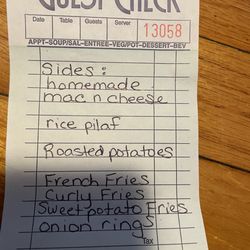 GUEST CHECK
Date Table Guests Server 13058
APPT-SOUP/SAL-ENTREE-VEG/POT-DESSERT-BEV
Sides:
homemade
mac n cheese
rice pilaf
Roasted potatoes
French Fries
Curly Fries
Sweet potato Fries
onion rings
Tax